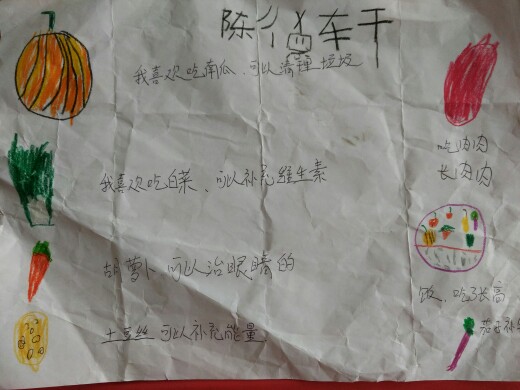 陈 车干
我喜欢吃南瓜、可以清理垃圾
吃肉肉
长肉肉
我喜欢吃白菜、可以补充维生素
胡萝卜 可以治眼睛的
饭、吃了长高
土豆丝 可以补充能量
茄子补